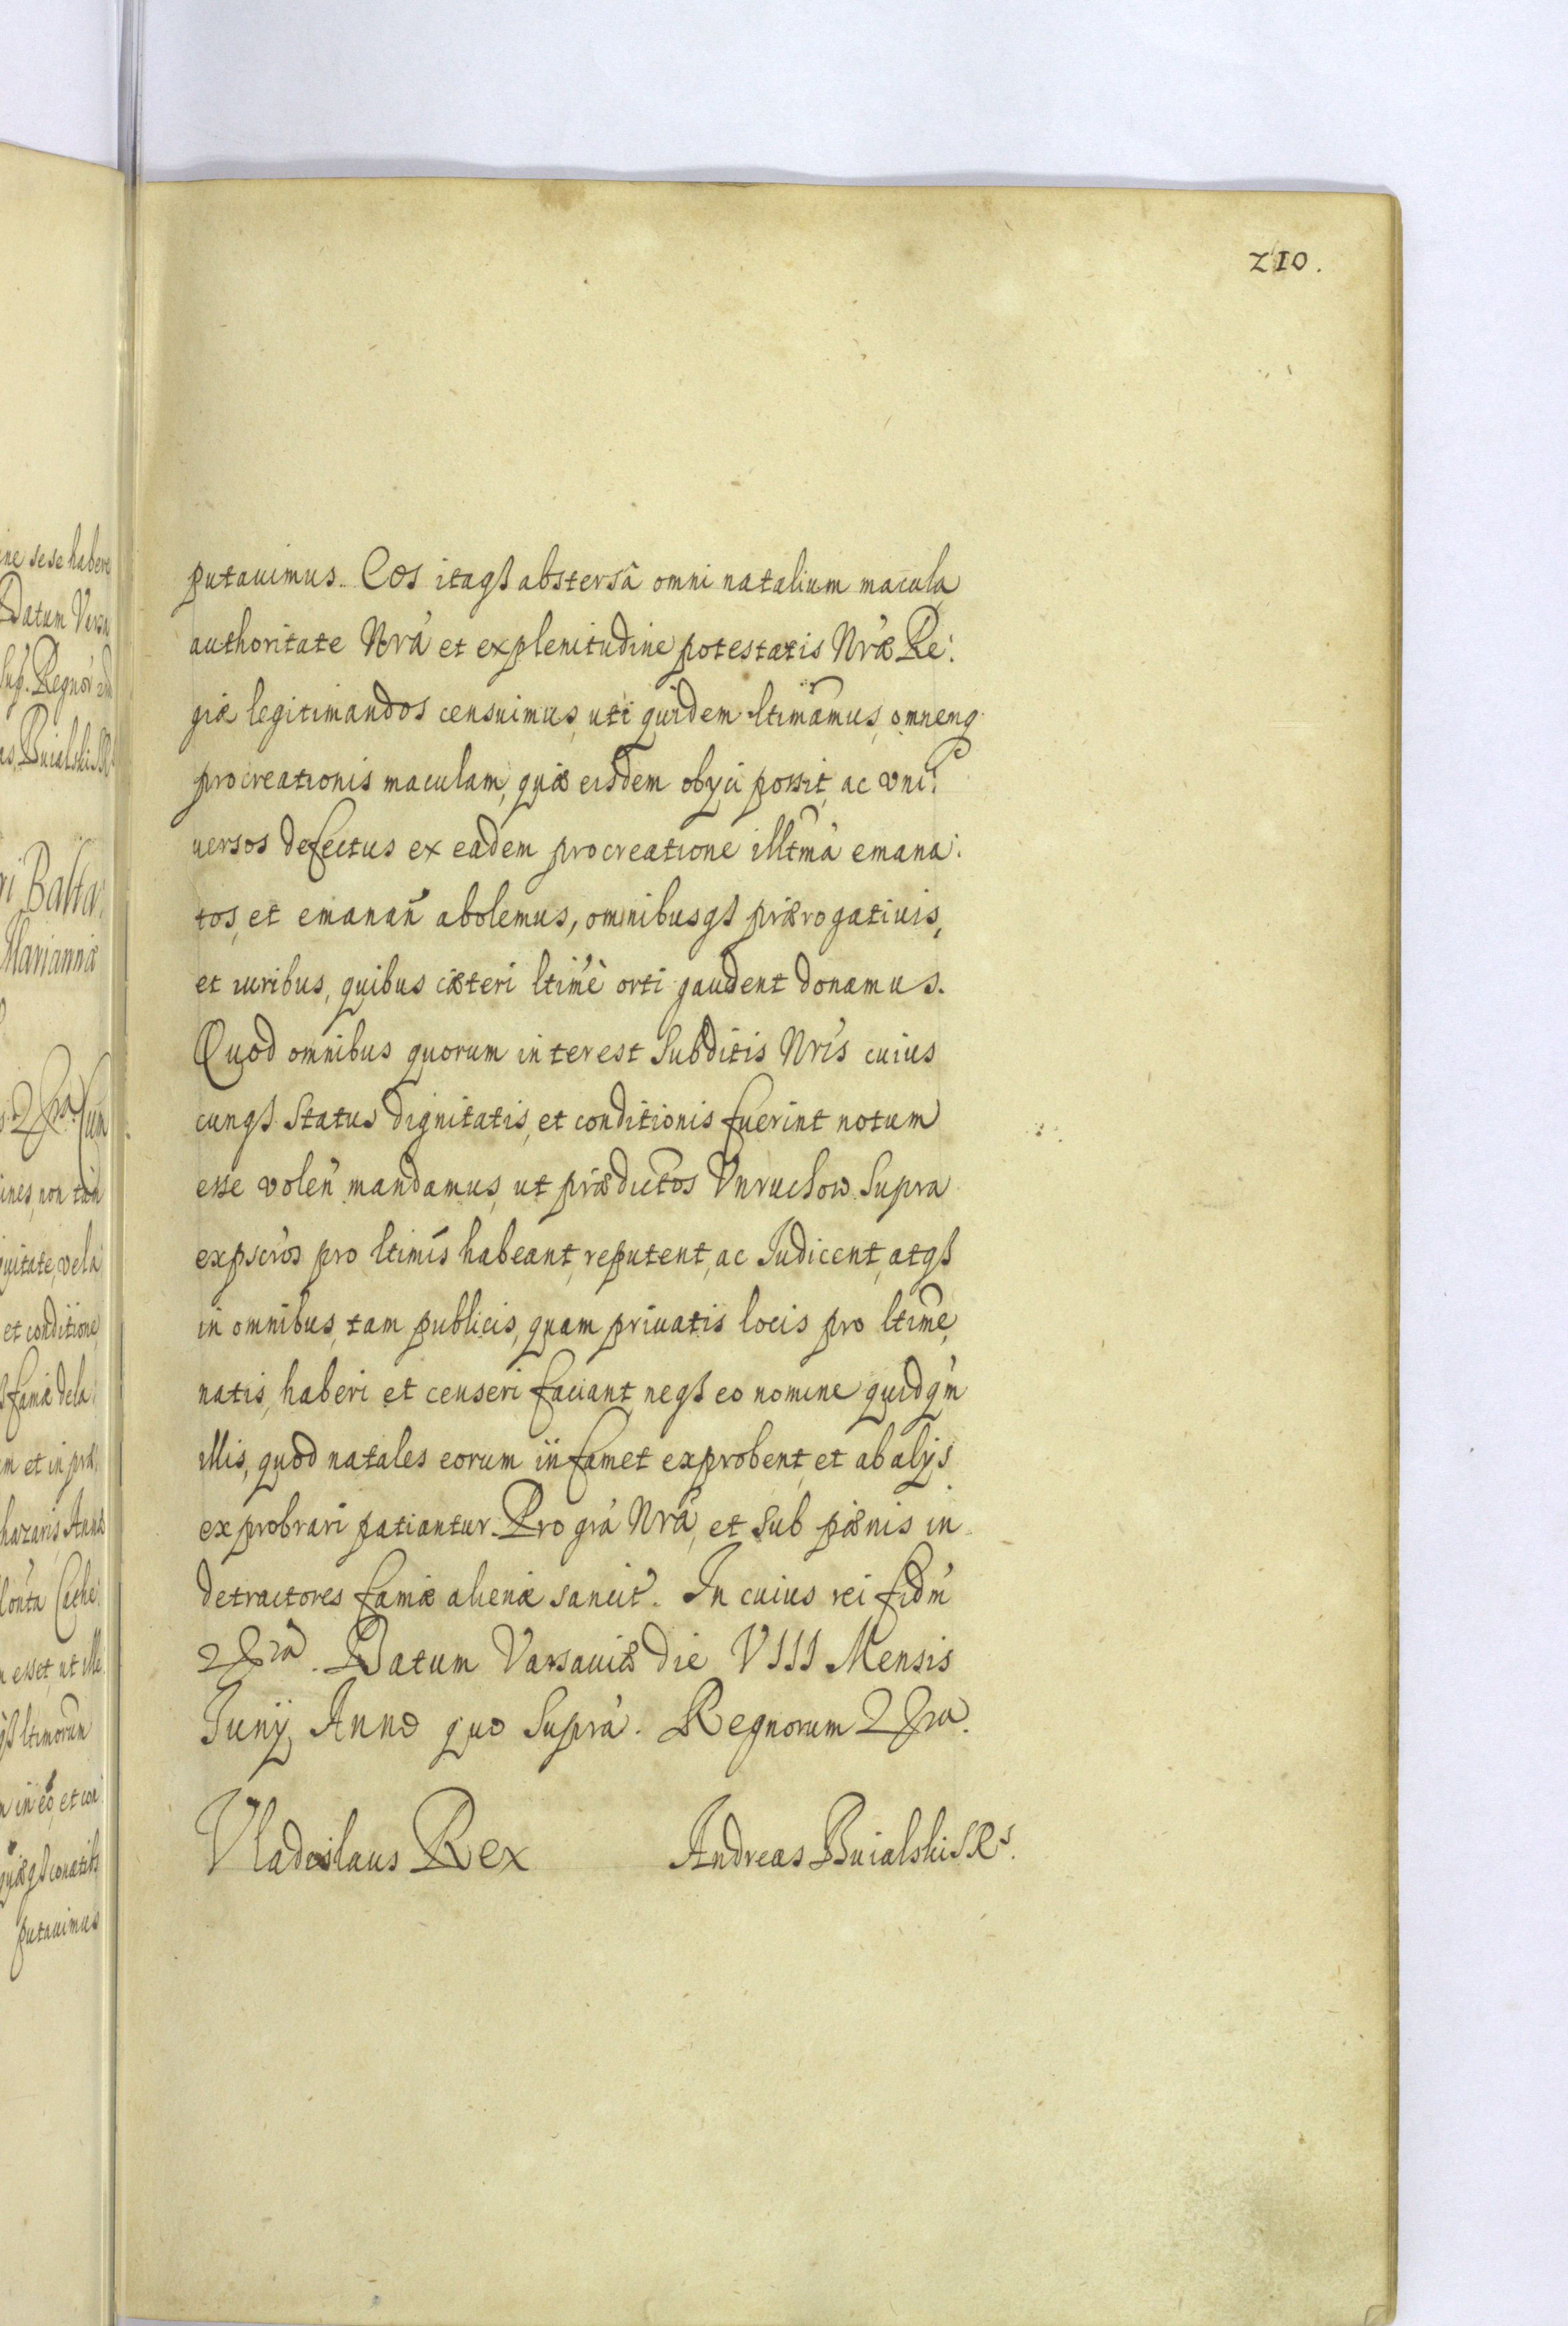 210.
putauimus. Eos itaqß abstersâ omni natalium macula
authoritate Nrá et explenitudine potestatis Nræ Re:
giæ legitimandos censuimus, uti quidem ltimamus, omnemq
procreationis maculam, quæ eisdem obijci possit, ac vni:
uersos defectus ex eadem procreatione illtmà emana:
tos, et emanañ abolemus, omnibusqß prærogatiuis,
et iuribus, quibus cæteri ltimè orti gaudent donamus.
Quod omnibus quorum interest Subditis Nris cuius
cunqß Status dignitatis, et conditionis fuerint notum
esse voleñ mandamus, ut prædictos Vnruchow Supra
expscros pro ltimis habeant, reputent, ac Judicent, atqß
in omnibus, tam publicis, quam priuatis locis pro ltime,
natis, haberi et censeri faciant, neqß eo nomine quidqm
illis, quod natales eorum infamet exprobent, et ab alijs
exprobrari patiantur. Pro grà Nrà, et Sub pænis in
detractores famæ alienæ sancit. In cuius rei fidm
Datum Varsauiæ die VIII Mensis
Junij Anno quo Suprà. Regnorum
Vladislaus Rex Andreas Buialski SRs.
ine sese habere
Datum Varsa
Regnor
Buialski
ri Balta
Mariannæ
Cum
ines, non tàm
uitate, vel à
et conditione,
famæ dela
m et in præ
hazaris, Anna
n esset, ut ille
qß ltimorum
in eo, et con
conatibs
putauimus